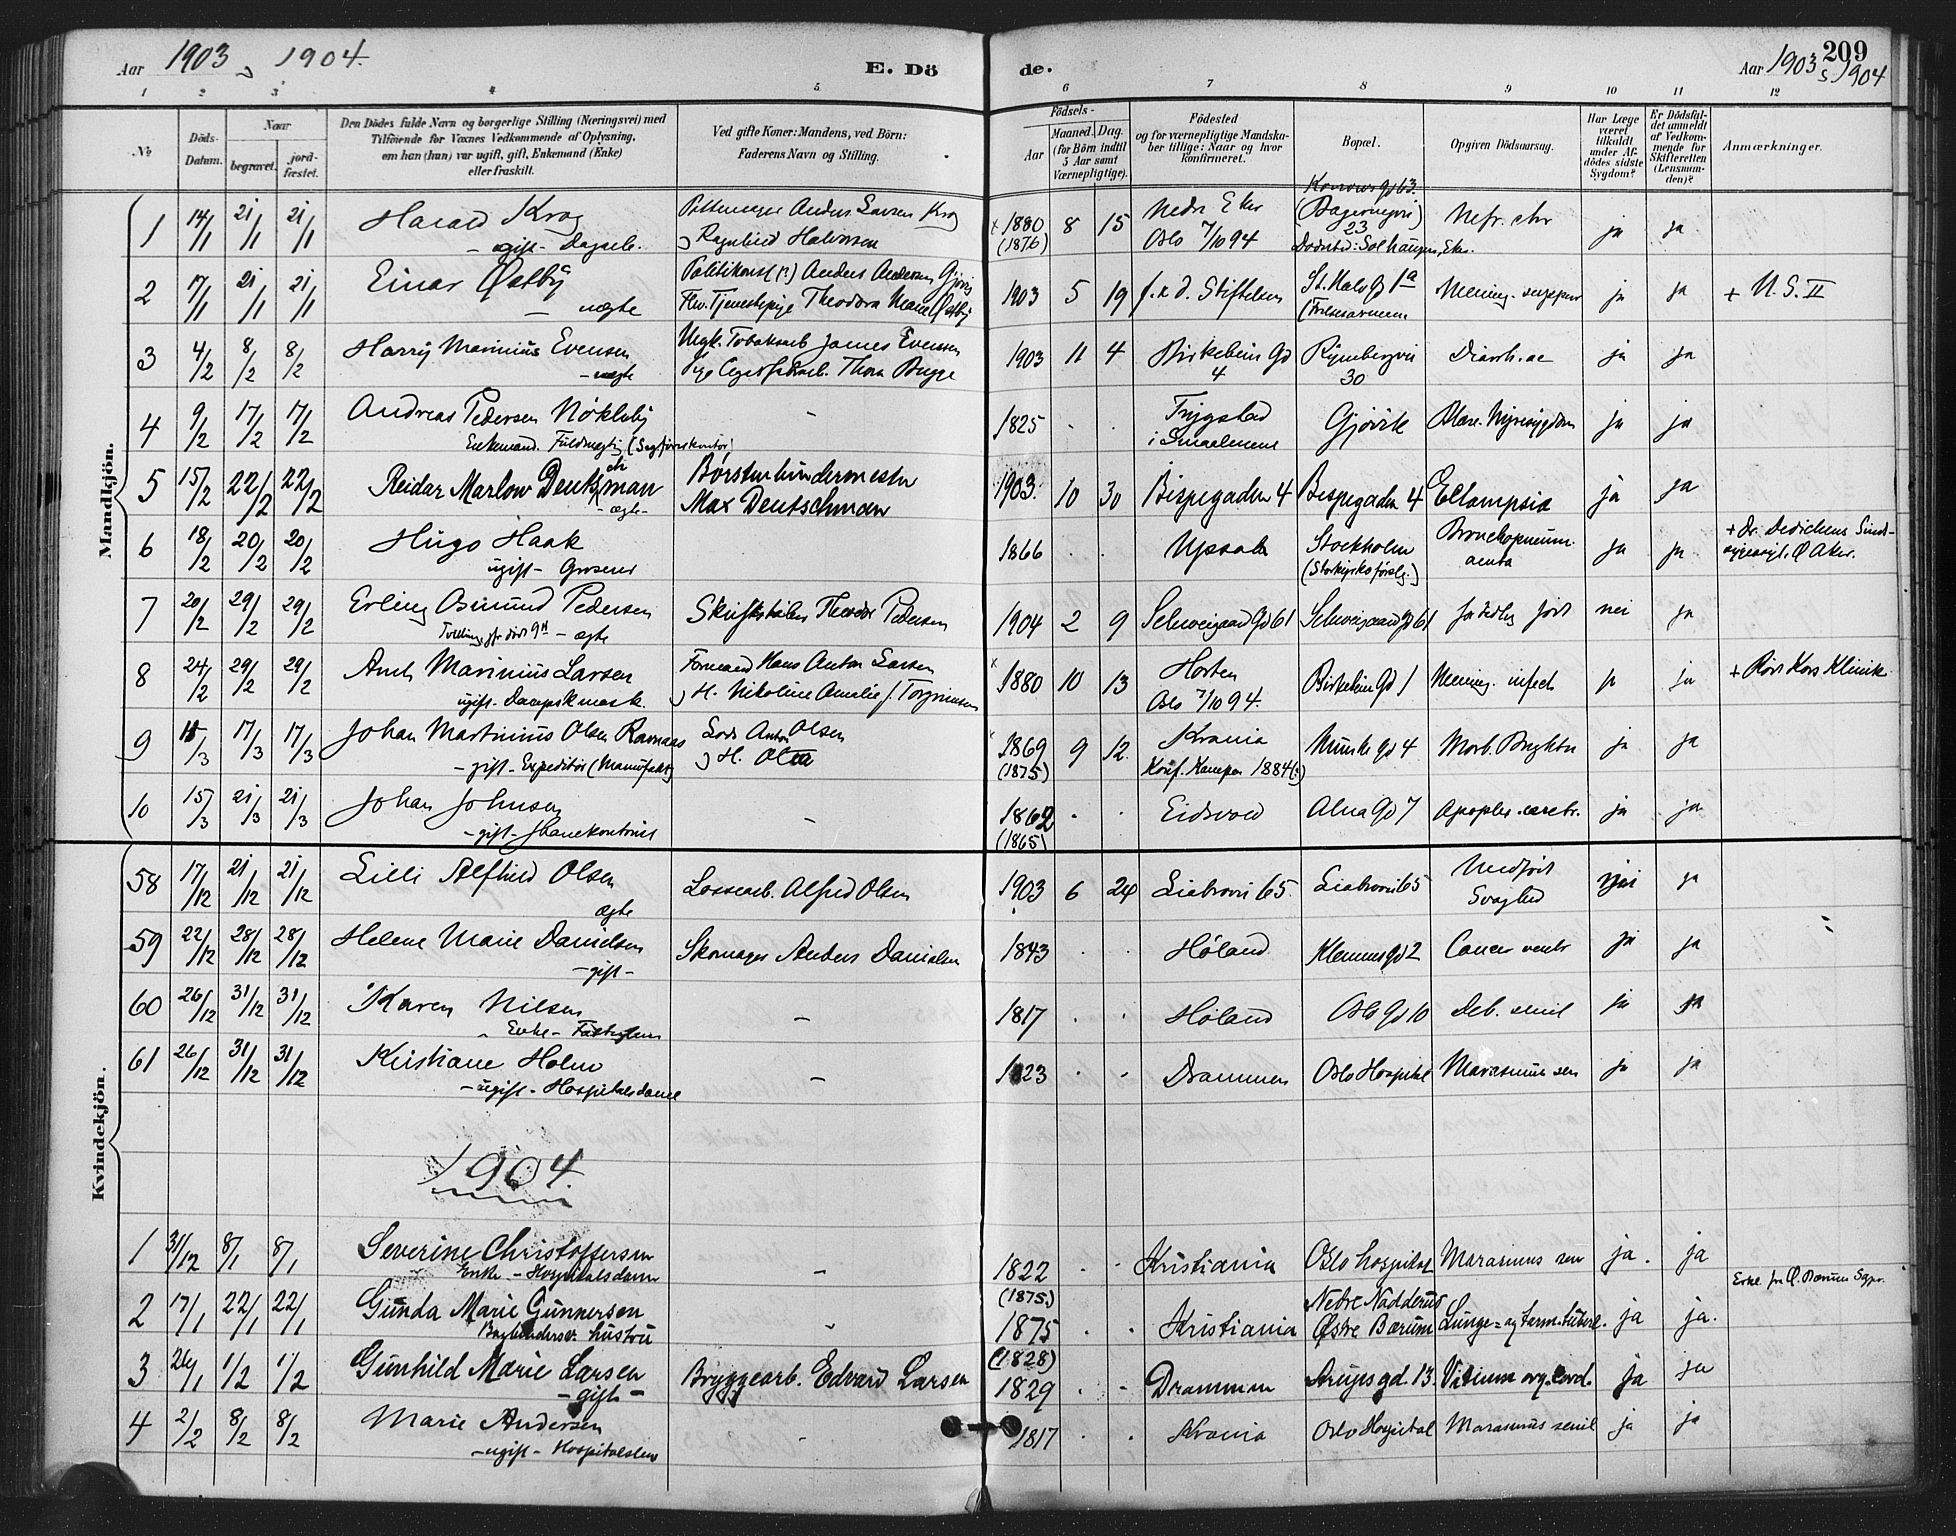 Aar 1903 & 1904.
E. Döde.
Aar 1903 & 1904
209
1 2 3 4 5 6 7 8 9 10 11 12
No
Døds-Datum.
Naar
begravet.
jordfæstet.
Den Dødes fulde Navn og borgerlige Stilling (Næringsvei) med
Tilföiende for Voxnes Vedkommende af Oplysning,
om han (hun) var ugift, gift, Enkemand (Enke)
eller fraskilt.
Ved gifte Koner: Mandens, ved Børn:
Faderens Navn og Stilling.
Födsels-
Aar
Maaned. Dag.
(for Børn indtil
5 Aar samt
Værnepligtige).
Födested
og for værnepligtige Mandskaber tillige: Naar og hvor
konfirmeret.
Bopæl.
Opgiven Dödsaarsag.
Har Læge
været
tilkaldt
under Afdödes sidste
Sygdom?
Er Dödsfaldet anmeldt
af Vedkommende for
Skifteretten
(Lensmanden)?
Anmærkninger.
Mandkjön.
1 14/1 21/1 21/1 Harald Krog Anders Larsen Krog 1880 8 15 Nedre Eker Nefr. chr ja ja
(1876) Oslo 7/10 94 23
Ragnhild Halvorsen
2 17/1 21/1 21/1 Einar Østby Anders Andersen Gjøvig 1903 5 19 f.x d. Stiftelsen ja ja + U.S. II
uægte Theodora Marie Østby
3 4/2 8/2 8/2 Harry Marinius Evensen James Evensen 1903 11 4 Birkebein Gd 4 30 Diarrh. ac ja ja
uægte Thora Bugge
4 9/2 17/2 17/2 Andreas Pedersen Nökleby - 1825 . . Trygstad i Smaalenene Gjövik ja ja
Enkemand. Fuldmægtig (Sagførerkontor)
5 15/2 22/2 22/2 Reidar Marlow Deutschman Börstenbindermester 1903. 10 30 Bispegaden 4 Bispegaden 4 Eclampsia ja ja
-ægte- Max Deutschman
6 18/2 20/2 20/2 Hugo Haak 1866 . . Upsala Stockholm Bronchopneum. acuta ja ja + Dr. Dedichens
ugift - Grosserer Ø Aker.
7 20/2 29/2 29/2 Erling Osmund Pedersen Theodor Pedersen 1904 2 9 Schweigaard Gd 61 Schweigaard Gd 61 for tidlig født nei ja
- ægte
8 24/2 29/2 29/2 Marinius Larsen Formand Hans Anton Larsen 1880 10 13 Horten Birkebein Gd 1 Mening. infect ja ja + Röde Kors Klinik
ugift. H. Nikoline Amalie f. Torgrimsen Oslo 7/10 94.
9 17/3 17/3 Johan Martinius Olsen Lods Anton Olsen 1869 9 12. Krania Munke Gd 4 Morb. Brightii ja ja
- gift - Expeditör (Manufakt) (1875) Konf. Kampen 1884(?)
10 15/3 21/3 21/3 Johan Johnsen - 1862 . . Eidsvold Alna Gd 7 Apoplex. cerebr. ja ja
- gift - Banekontorist (1865)
Kvindekjön.
58 17/12 21/12 21/12 Lilli Alfhild Olsen Lossearb. Alfred Olsen 1903 6 24 Liabrovei 65. Liabrovei 65 Medfödt Svaghed ja
ægte
59 22/12 28/12 28/12 Helene Marie Danielsen Skomager Anders Danielsen 1843 . . Höland Klemens Gd 2 Cancer ventr ja ja
-gift-
60 26/12 31/12 31/12 Karen Nilsen - 1817 . . Höland Oslo Gd 10 Deb. senil ja ja
Enke -
61 26/12 31/12 31/12 Kristiane Holm - 1823 . . Drammen Oslo Hospital Marasmus sen ja ja
- ugift - Hospitalsdame
1904.
1 31/12 8/1 8/1 Severine Christoffersen - 1822 . . Kristiania Oslo hospital Marasmus sen ja. ja
Enke - Hospitalsdame
2 17/1 22/1 22/1 Gunda Marie Gunnersen (1875.) 1875 . . Kristiania Nedre Nadderud Østre Bærum Lunge- og tarm-tuberk. ja ja. Erkl. fra Ø. Bærums Sgpr.
Bogbinders hustru
3 26/1 1/2 1/2 Gunhild Marie Larsen Bryggearb. Edvard Larsen (1828) 1829 . . Drammen Arupsgd. 13. Vitium org. cord. ja ja
- gift -
4 2/2 8/2 8/2 Marie Andersen - 1817 . . Krania Oslo Hospital Marasmus senil ja ja
- ugift - Hospitalslem